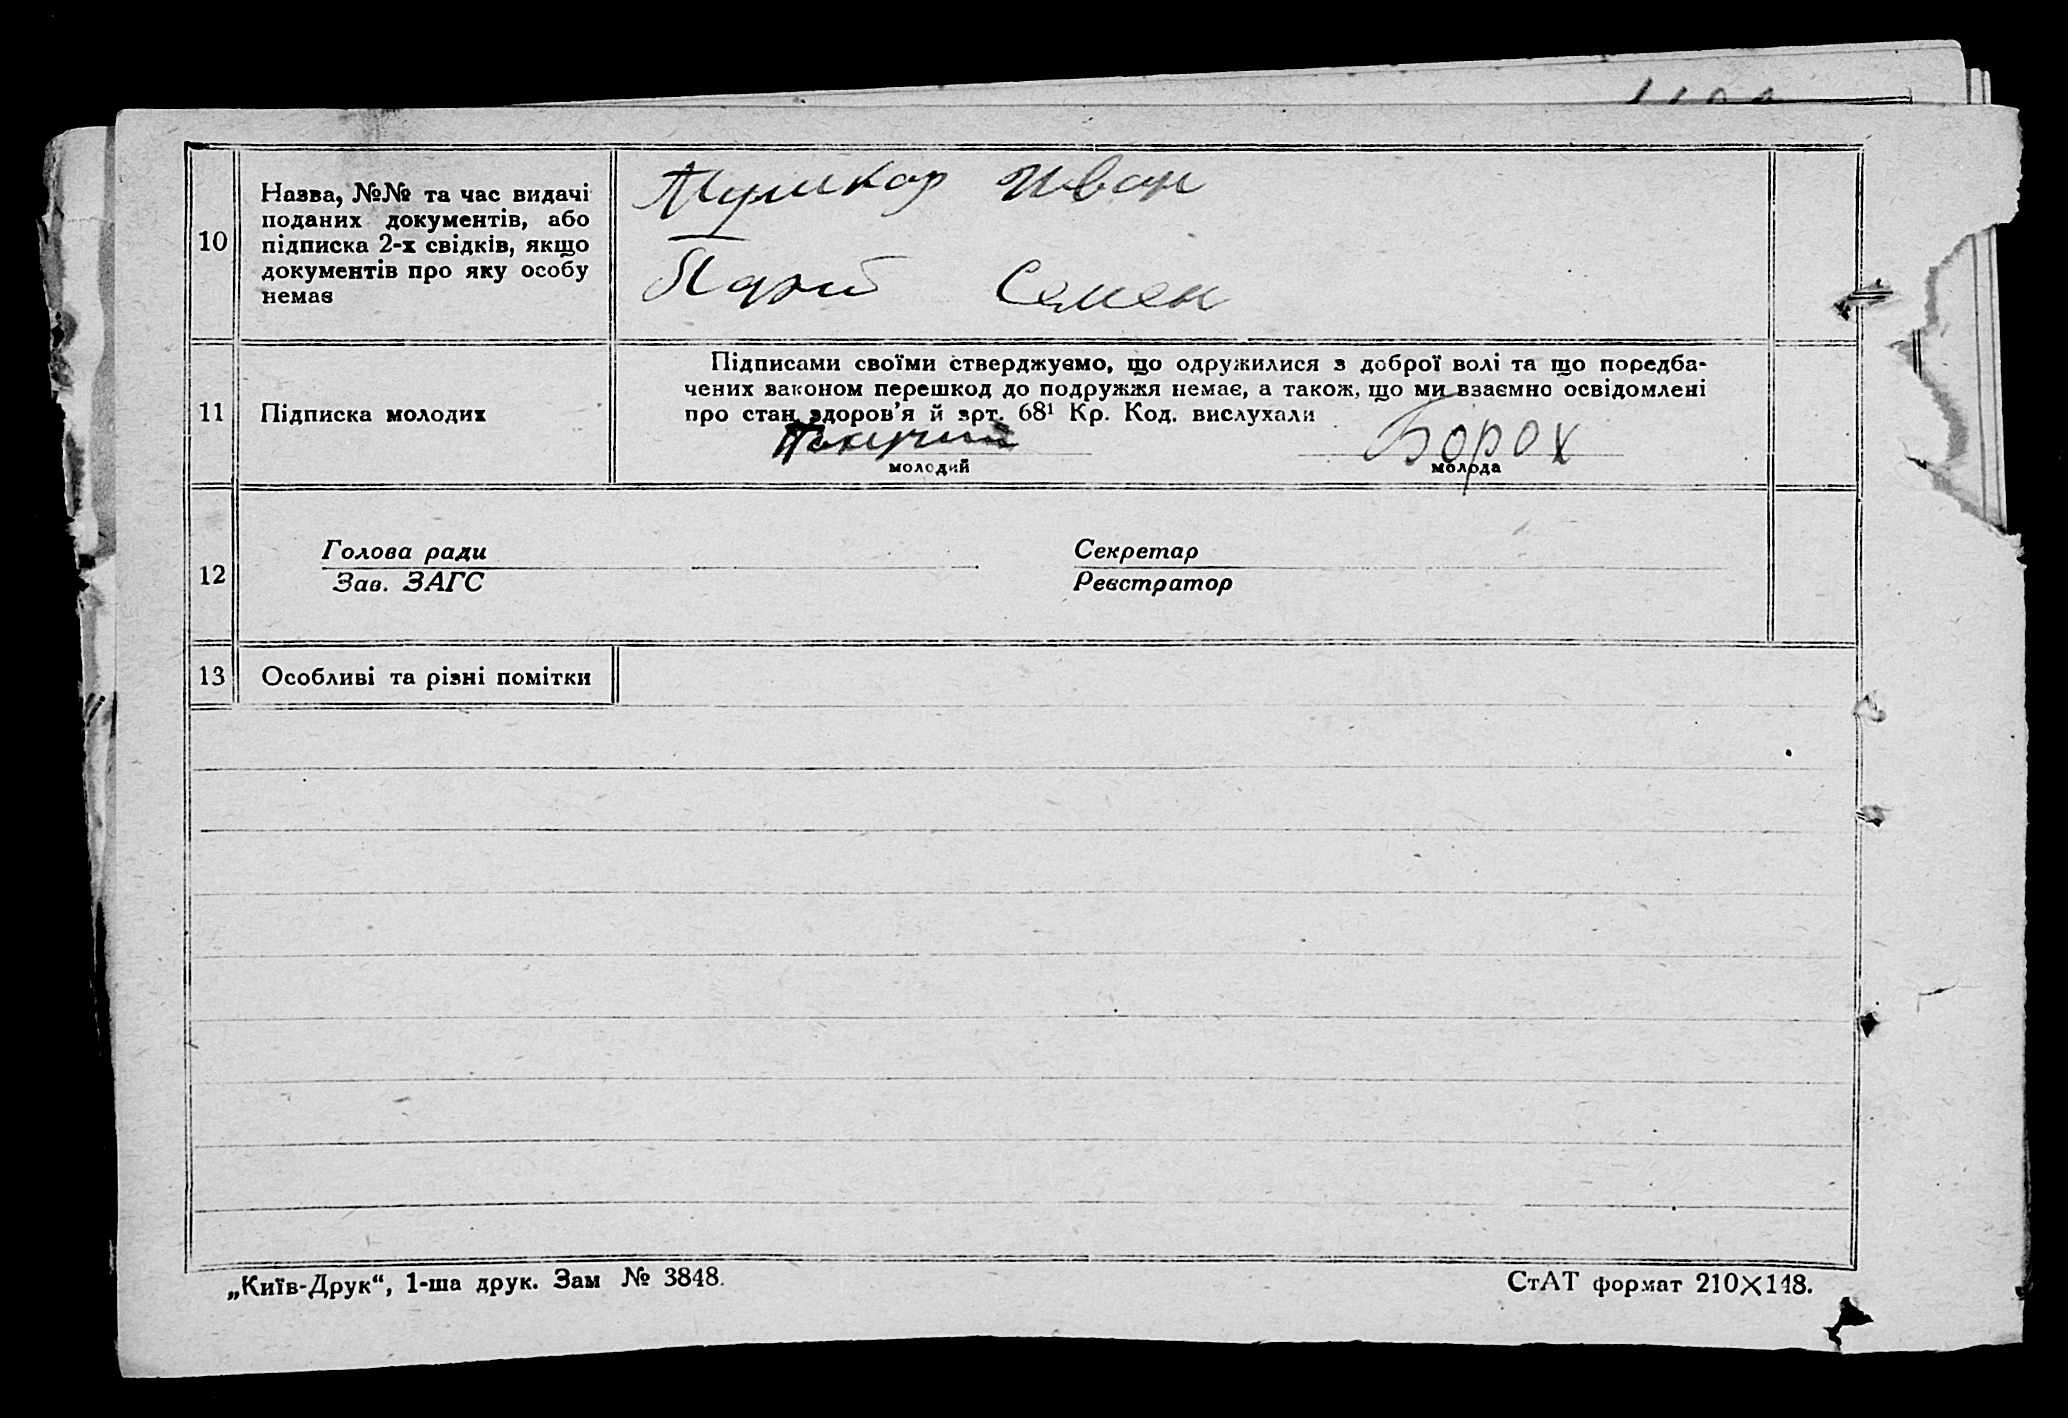 10
Назва, №№ та час видачі
поданих документів, або
підписка 2-х свідків, якщо
документів про яку особу
немає
Иван
Семен
11
Підписка молодих
Підписами своїми стверджуємо, що одружилися з доброї волі та що поредба-
чених законом перешкод до подружжя немає, а також, що ми взаємно освідомлені
про стан здоров'я й арт. 68¹ Кр. Код. вислухали
Борох
молодий
молода
12
Голова ради
Зав. ЗАГС
Секретар
Реєстратор
13
Особливі та різні помітки
„Київ-Друк“, 1-ша друк. Зам № 3848.
СтАТ формат 210×148.